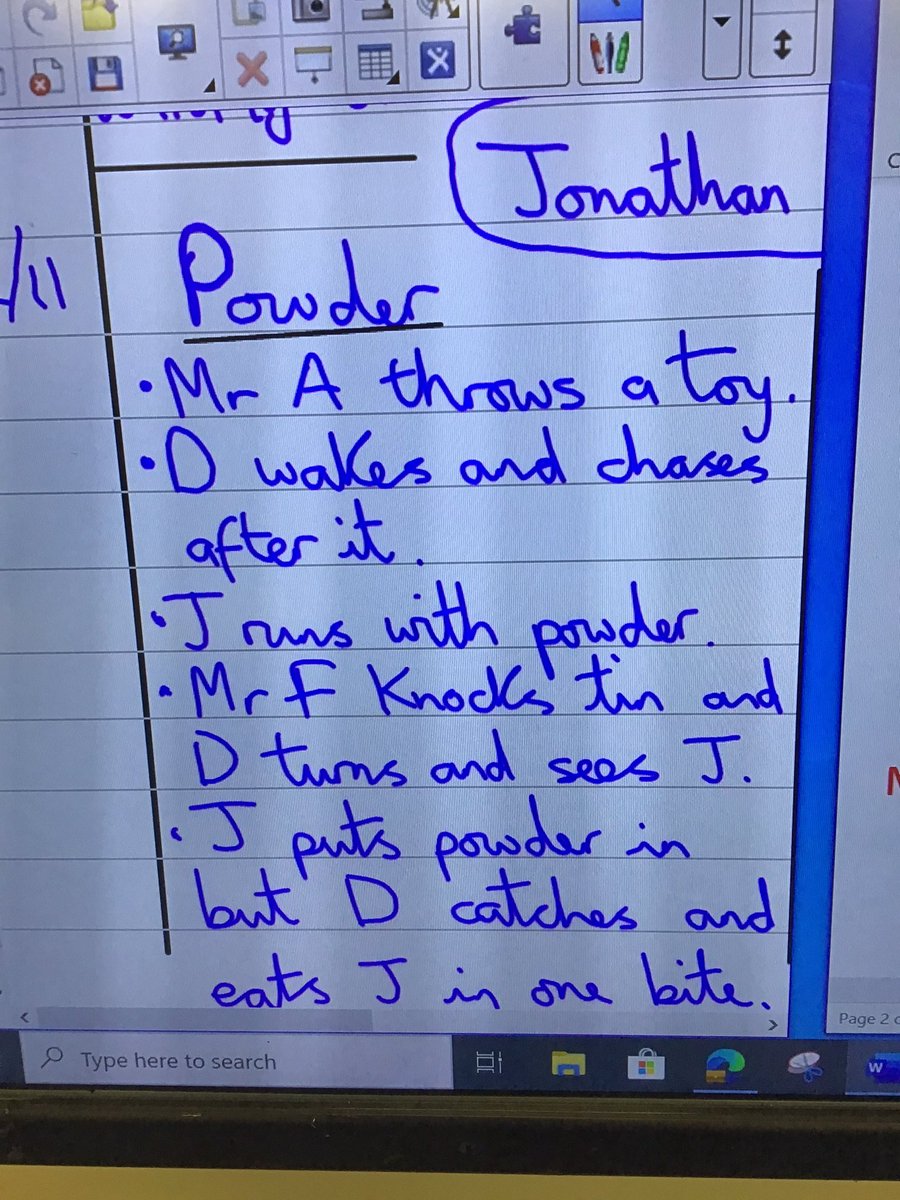 Jonathan
/11
Powder
• Mr A throws a toy.
• D wakes and chases
after it.
• J runs with powder.
• Mr F Knocks tin and
D turns and sees J.
• J puts powder in
but D catches and
eats J in one bite.
Page 2
Type here to search